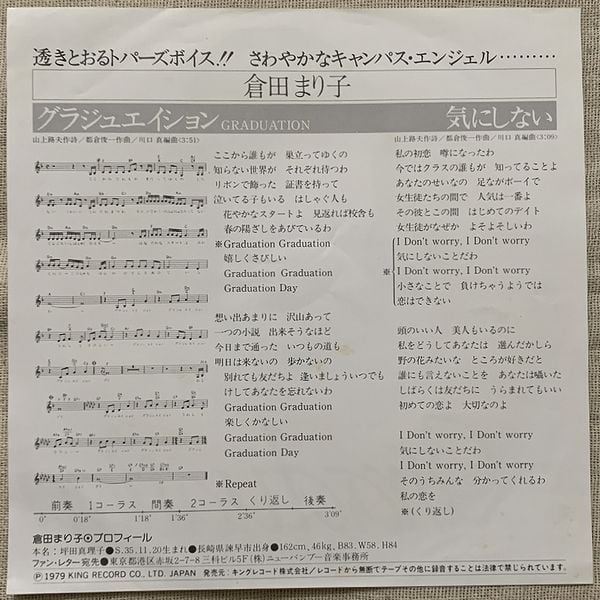 透きとおるトパーズボイス.!! さわやかなキャンパス・エンジェル………
倉田まり子
グラジュエイション GRADUATION
山上路夫作詩／都倉俊一作曲／川口 真編曲〈3:51〉
ここから誰もが 巣立ってゆくの
知らない世界が それぞれ待つわ
リボンで飾った 証書を持って
泣いてる子もいる はしゃぐ人も
花やかなスタートよ 見返れば校舎も
春の陽ざしをあびているわ
※Graduation Graduation
嬉しくさびしい
Graduation Graduation
Graduation Day
想い出あまりに 沢山あって
一つの小説 出来そうなほど
今日まで通った いつもの道も
明日は来ないの 歩かないの
別れても友だちよ 逢いましょういつでも
けしてあなたを忘れないわ
Graduation Graduation
楽しくかなしい
Graduation Graduation
Graduation Day
※Repeat
前奏 1コーラス 間奏 2コーラス くり返し 後奏
0" 0'18" 1'36" 2'36" 3'09"
気にしない
山上路夫作詩／都倉俊一作曲／川口 真編曲〈3:09〉
私の初恋 噂になったわ
今ではクラスの誰もが 知ってることよ
あなたのせいなの 足ながボーイで
女生徒たちの間で 人気は一番よ
その彼とこの間 はじめてのデイト
女生徒がなぜか よそよそしいわ
I Don't worry, I Don't worry
気にしないことだわ
※ I Don't worry, I Don't worry
小さなことで 負けちゃうようでは
恋はできない
頭のいい人 美人もいるのに
私をどうしてあなたは 選んだかしら
野の花みたいな ところが好きだと
誰にも言えないことを あなたは囁いた
しばらくは友だちに うらまれてもいい
初めての恋よ 大切なのよ
I Don't worry, I Don't worry
気にしないことだわ
I Don't worry, I Don't worry
そのうちみんな 分かってくれるわ
私の恋を
※(くり返し)
倉田まり子◉プロフィール
本名：坪田真理子●S.35.11.20生まれ●長崎県諫早市出身●162cm, 46kg, B83. W58. H84
ファン・レター宛先●東京都港区赤坂2-7-8三科ビル5F(株)ニューバンブー音楽事務所
Ⓟ1979 KING RECORD CO., LTD. JAPAN 発売元：キングレコード株式会社／レコードから無断てテープその他に録音することは法律で禁じられています。